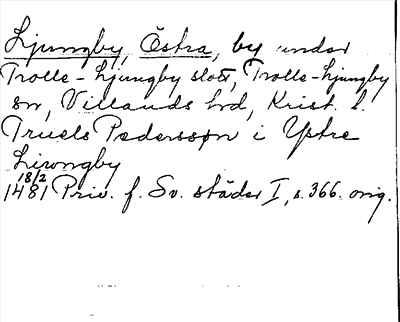 Ljungby, Östra, by under
Trolle-Ljungby slott, Trolle-Ljungby
sn, Villands hd, Krist. l.
Truels Pedersson i Ystre
Liwngby
18/2
1481 Priv. f. Sv. städer I, s. 366. orig.